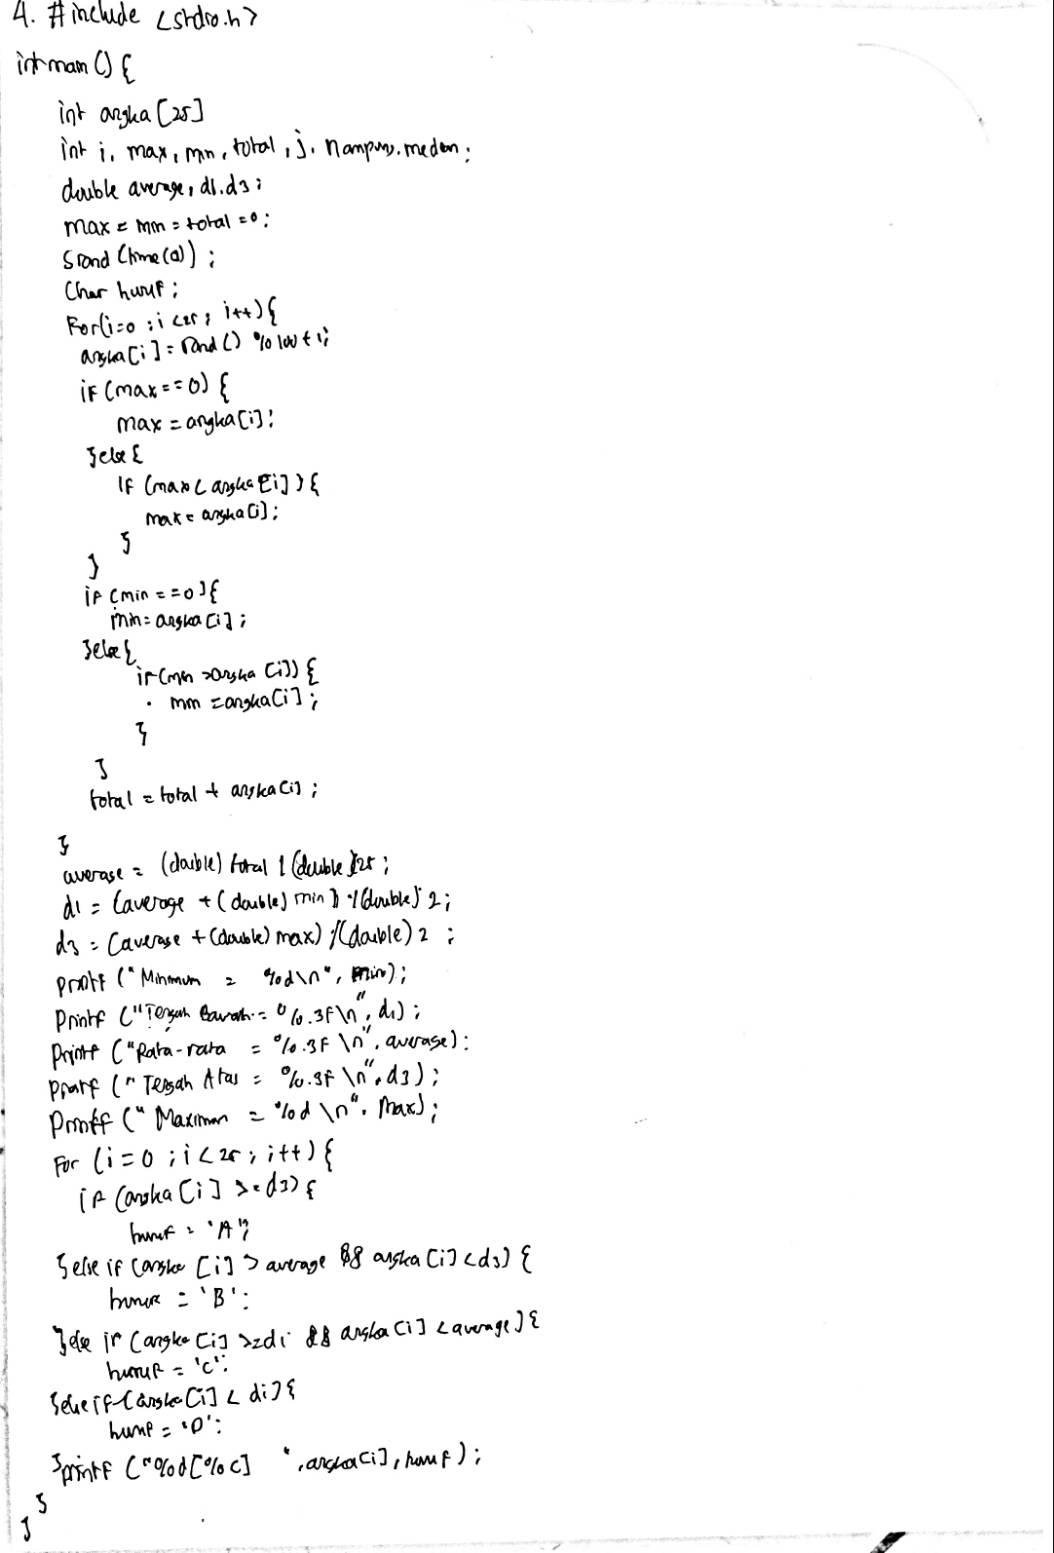 4. #include <stdio.h>
int main () {
int angka [25]
int i, max, min, total, j, nampung, median;
double average, d1, d3;
max = min = total = 0;
Srand (time(0));
Char huruf;
For(i=0; i<25; i++){
angka[i] = rand () % 100 + 1;
if (max == 0) {
max = angka[i];
}else {
if (max < angka[i]) {
max = angka[i];
}
}
if (min == 0){
min = angka[i];
}else{
if (min > angka [i]) {
min = angka[i];
}
}
total = total + angka[i];
}
average = (double) total / (double) 25;
d1 = (average + (double) min) / (double) 2;
d3 = (average + (double) max) / (double) 2;
printf ("Minimum = %d\n", min);
Printf ("Tengah Bawah = %.3f\n", d1);
Printf ("Rata-rata = %.3f \n", average);
Printf ("Tengah Atas = %.3f \n", d3);
Printf ("Maximum = %d \n", max);
For (i=0; i<25; i++){
if (angka [i] >= d3) {
huruf = 'A';
}else if (angka [i] > average && angka [i] < d3) {
huruf = 'B';
}else if (angka [i] >= d1 && angka [i] < average) {
huruf = 'C';
}else if (angka [i] < d1) {
huruf = 'D';
}printf ("%d[%c] ", angka[i], huruf);
}
}